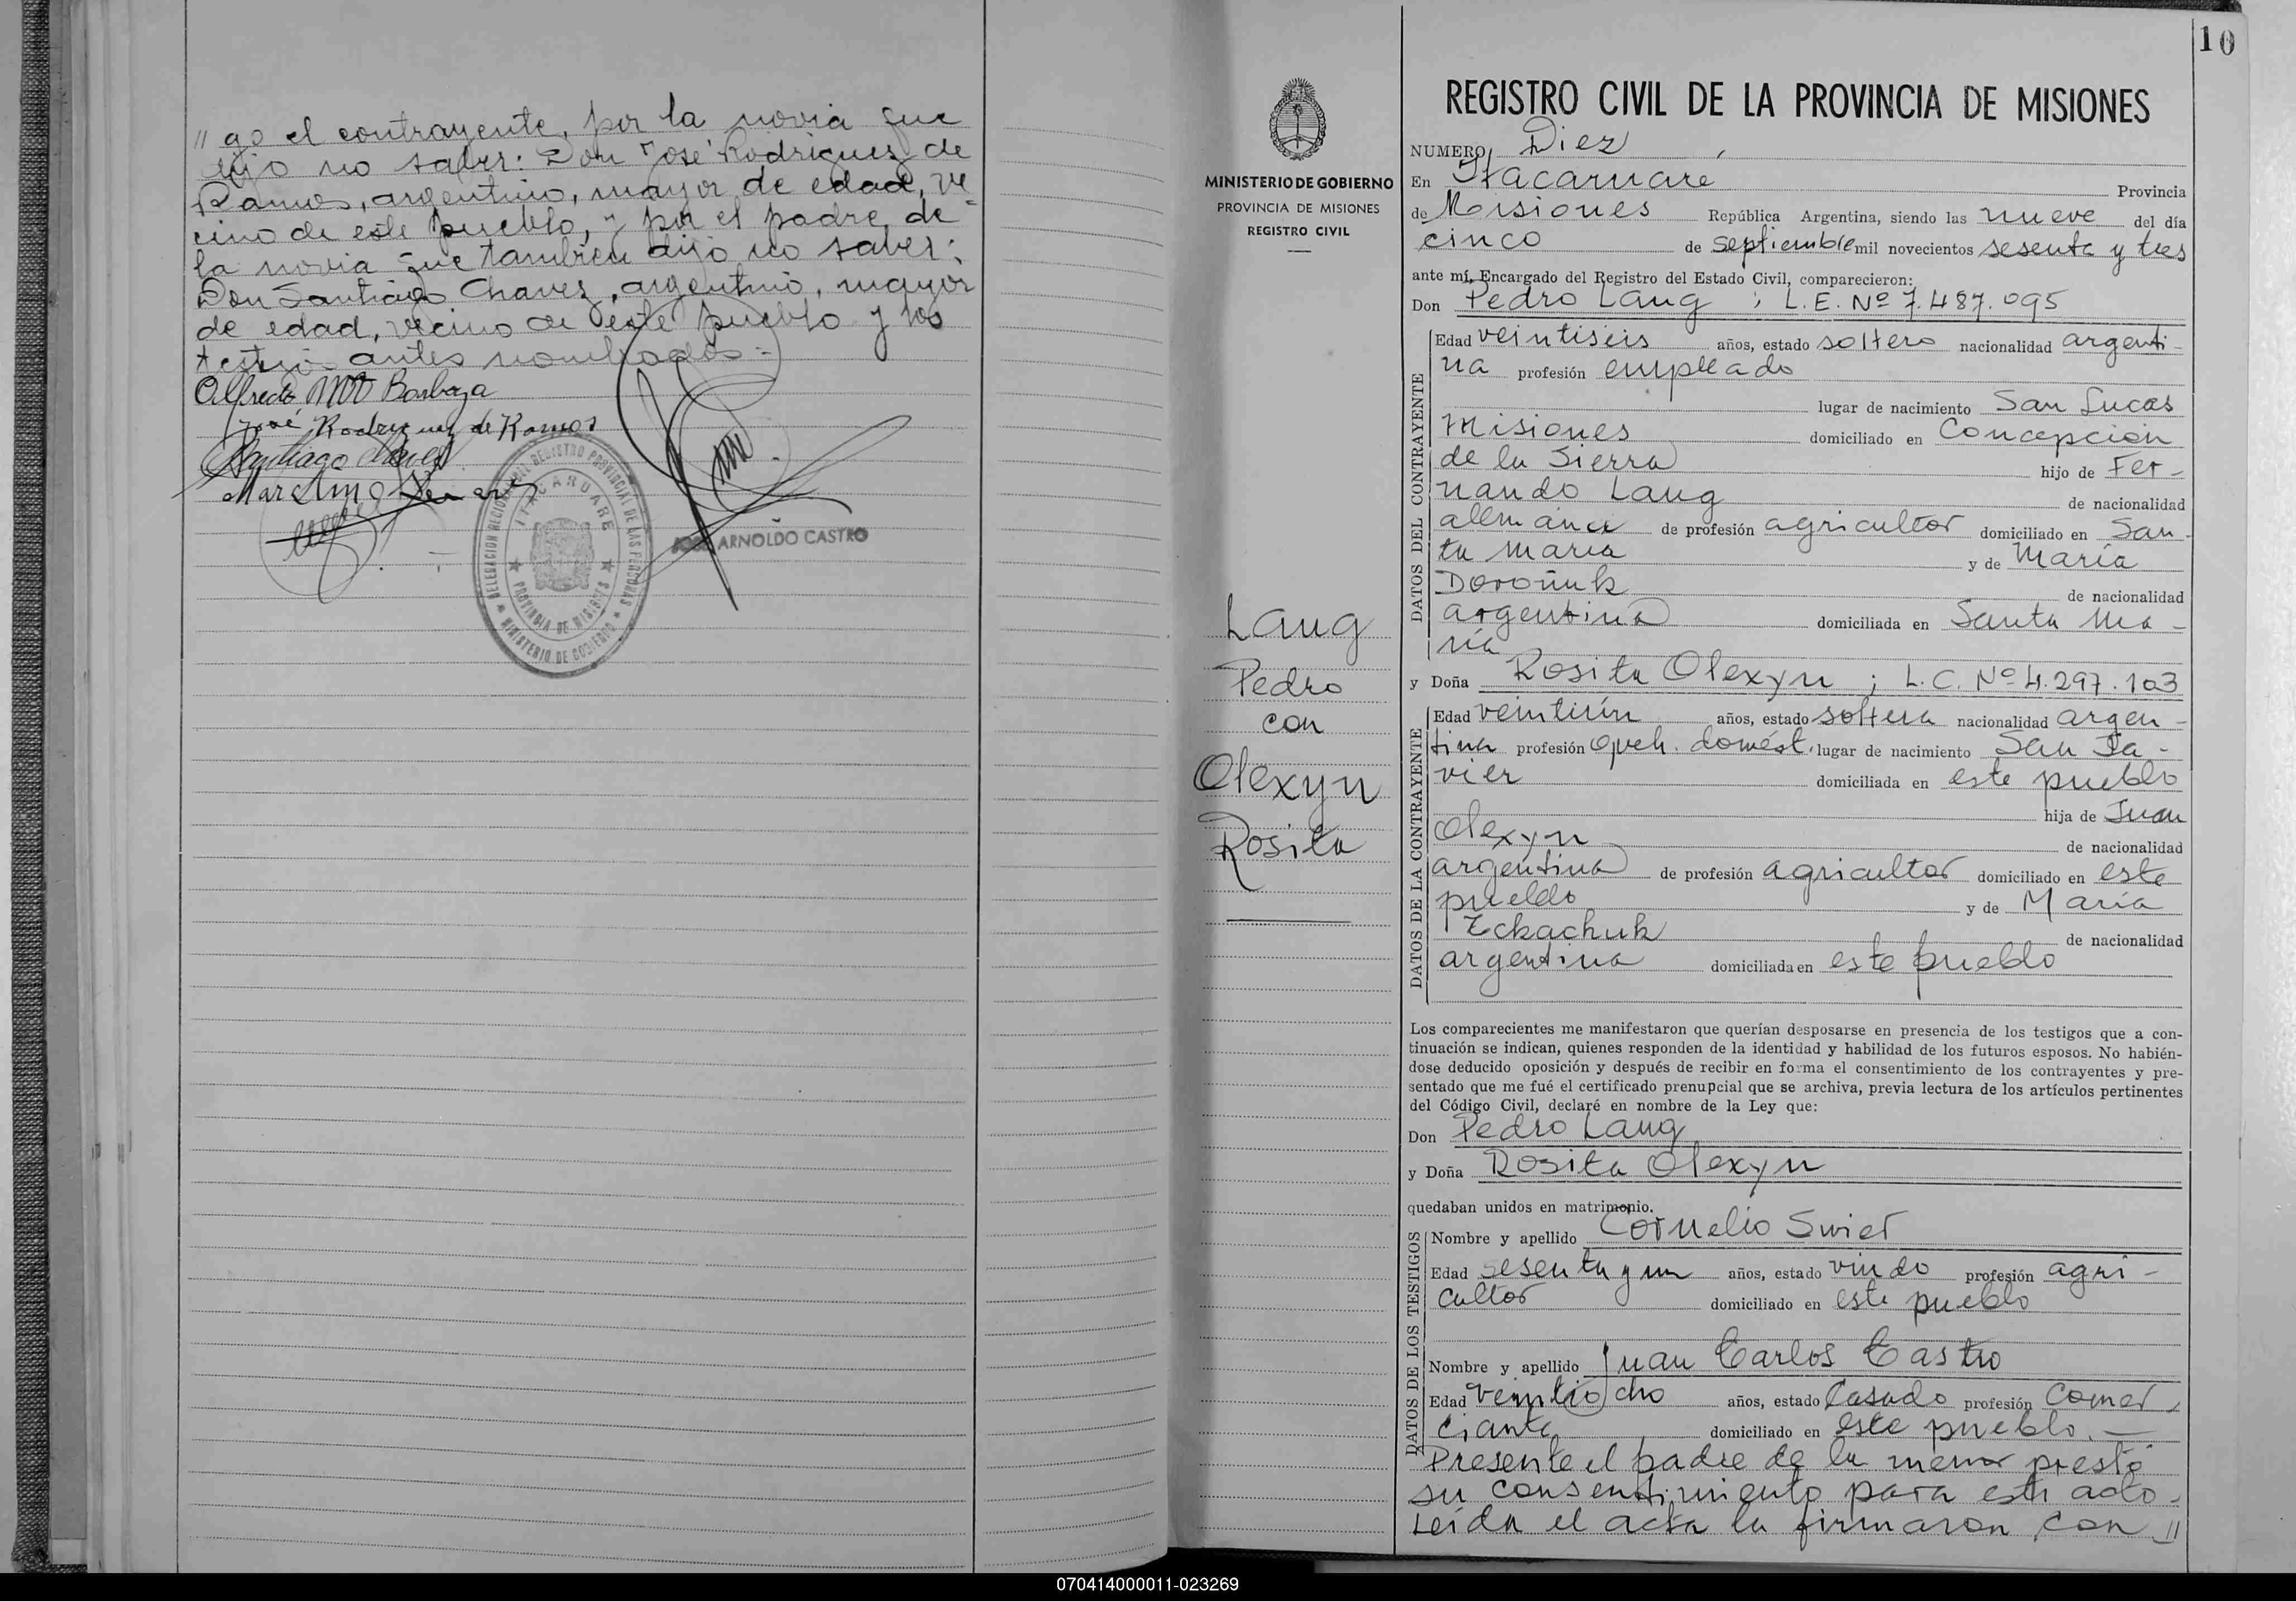 // go el contrayente, por la novia que
dijo no saber: Don José Rodriguez de
Ramos, argentino, mayor de edad, ve-
cino de este pueblo, y por el padre de
la novia que también dijo no saber:
Don Santiago Chavez, argentino, mayor
de edad, vecino de este pueblo y los
testigos antes nombrados=
Alfredo Barboza
José Rodriguez de Ramos
Santiago Chavez
DELEGACION REGIONAL DEL REGISTRO PROVINCIAL DE LAS PERSONAS
ITACARUARE
PROVINCIA DE MISIONES
MINISTERIO DE GOBIERNO
ARNOLDO CASTRO
MINISTERIO DE GOBIERNO
PROVINCIA DE MISIONES
REGISTRO CIVIL
Lang
Pedro
con
Olexyn
Rosita
10
REGISTRO CIVIL DE LA PROVINCIA DE MISIONES
NUMERO Diez
En Itacaruaré Provincia
de Misiones República Argentina, siendo las nueve del día
cinco de septiembre mil novecientos sesenta y tres
ante mí, Encargado del Registro del Estado Civil, comparecieron:
Don Pedro Lang ; L.E. Nº 7.487.095
DATOS DEL CONTRAYENTE
Edad veintiseis años, estado soltero nacionalidad argenti-
na profesión empleado
lugar de nacimiento San Lucas
Misiones domiciliado en Concepción
de la Sierra hijo de Fer-
nando Lang de nacionalidad
alemana de profesión agricultor domiciliado en San-
ta María y de María
Doroñuk de nacionalidad
argentina domiciliada en Santa Ma-
ría
y Doña Rosita Olexyn ; L.C. Nº 4.297.103
DATOS DE LA CONTRAYENTE
Edad veintiún años, estado soltera nacionalidad argen-
tina profesión Queh. domést. lugar de nacimiento San Ja-
vier domiciliada en este pueblo
hija de Juan
Olexyn de nacionalidad
argentina de profesión agricultor domiciliado en este
pueblo y de María
Zckachuk de nacionalidad
argentina domiciliada en este pueblo
Los comparecientes me manifestaron que querían desposarse en presencia de los testigos que a con-
tinuación se indican, quienes responden de la identidad y habilidad de los futuros esposos. No habién-
dose deducido oposición y después de recibir en forma el consentimiento de los contrayentes y pre-
sentado que me fué el certificado prenupcial que se archiva, previa lectura de los artículos pertinentes
del Código Civil, declaré en nombre de la Ley que:
Don Pedro Lang
y Doña Rosita Olexyn
quedaban unidos en matrimonio.
DATOS DE LOS TESTIGOS
Nombre y apellido Cornelio Swier
Edad sesenta y un años, estado viudo profesión agri-
cultor domiciliado en este pueblo
Nombre y apellido Juan Carlos Castro
Edad veintiocho años, estado Casado profesión Comer-
ciante domiciliado en este pueblo. —
Presente el padre de la menor prestó
su consentimiento para este acto.
Leída el acta la firmaron con //
070414000011-023269